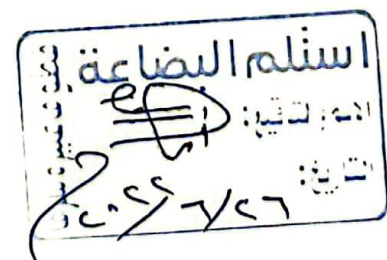 استلم البضاعة
الاسم والتوقيع:
التاريخ:
٢٠٢٢/٦/٢٦